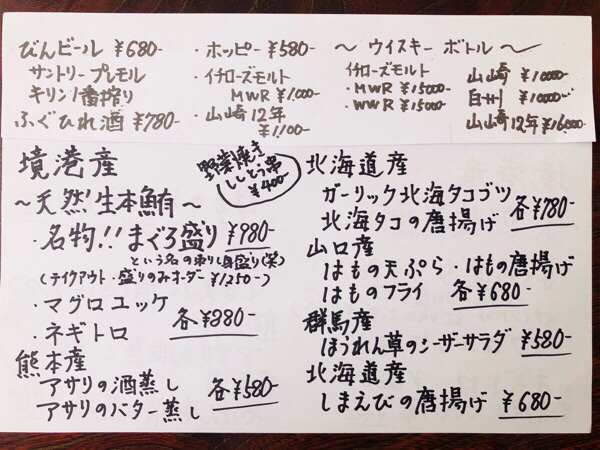 びんビール ¥680-
サントリープレモル
キリン1番搾り
ふぐひれ酒 ¥780-
・ホッピー ¥580-
・イチローズモルト
MWR ¥1,000-
・山崎12年
¥1,100-
～ウイスキー ボトル～
イチローズモルト
・MWR ¥15000-
・WWR ¥15000-
山崎 ¥10000-
白州 ¥10000-
山崎12年 ¥16,000-
境港産
～天然生本鮪～
・名物!!まぐろ盛り ¥980-
という名の刺し身盛り(笑)
(テイクアウト・盛りのみオーダー ¥1250-)
・マグロユッケ
・ネギトロ 各¥880-
熊本産
アサリの酒蒸し
アサリのバター蒸し 各¥580-
野菜焼き
ししとう串
¥400-
北海道産
ガーリック北海タコブツ
北海タコの唐揚げ 各¥780-
山口産
はもの天ぷら・はもの唐揚げ
はものフライ 各¥680-
群馬産
ほうれん草のシーザーサラダ ¥580-
北海道産
しまえびの唐揚げ ¥680-